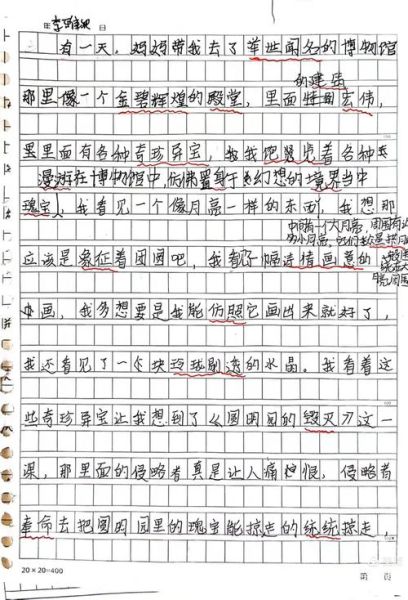 年 李 月 日
有一天，妈妈带我去了举世闻名的博物馆
的建筑
那里像一个金碧辉煌的殿堂，里面特面宏伟，
里里面有各种奇珍异宝，我我饱览着各种
漫游在博物馆中，仿佛置身于幻想的境界当中
瑰宝，我看见一个像月亮一样的东西，我想那
中间有一个大月亮，周围有
应该是象征着团团吧，我看了一幅诗情画意的
画，我多想要是我能仿照它画出来就好了，
我还看见了一个块玲珑剔透的水晶。我看着这
些奇珍异宝让我想到了《圆明园的毁灭》这一
课，那里面的侵略者真是让人痛恨，侵略者
奉命去把圆明园里的瑰宝能掠走的统统掠走，
20×20=400
第 页